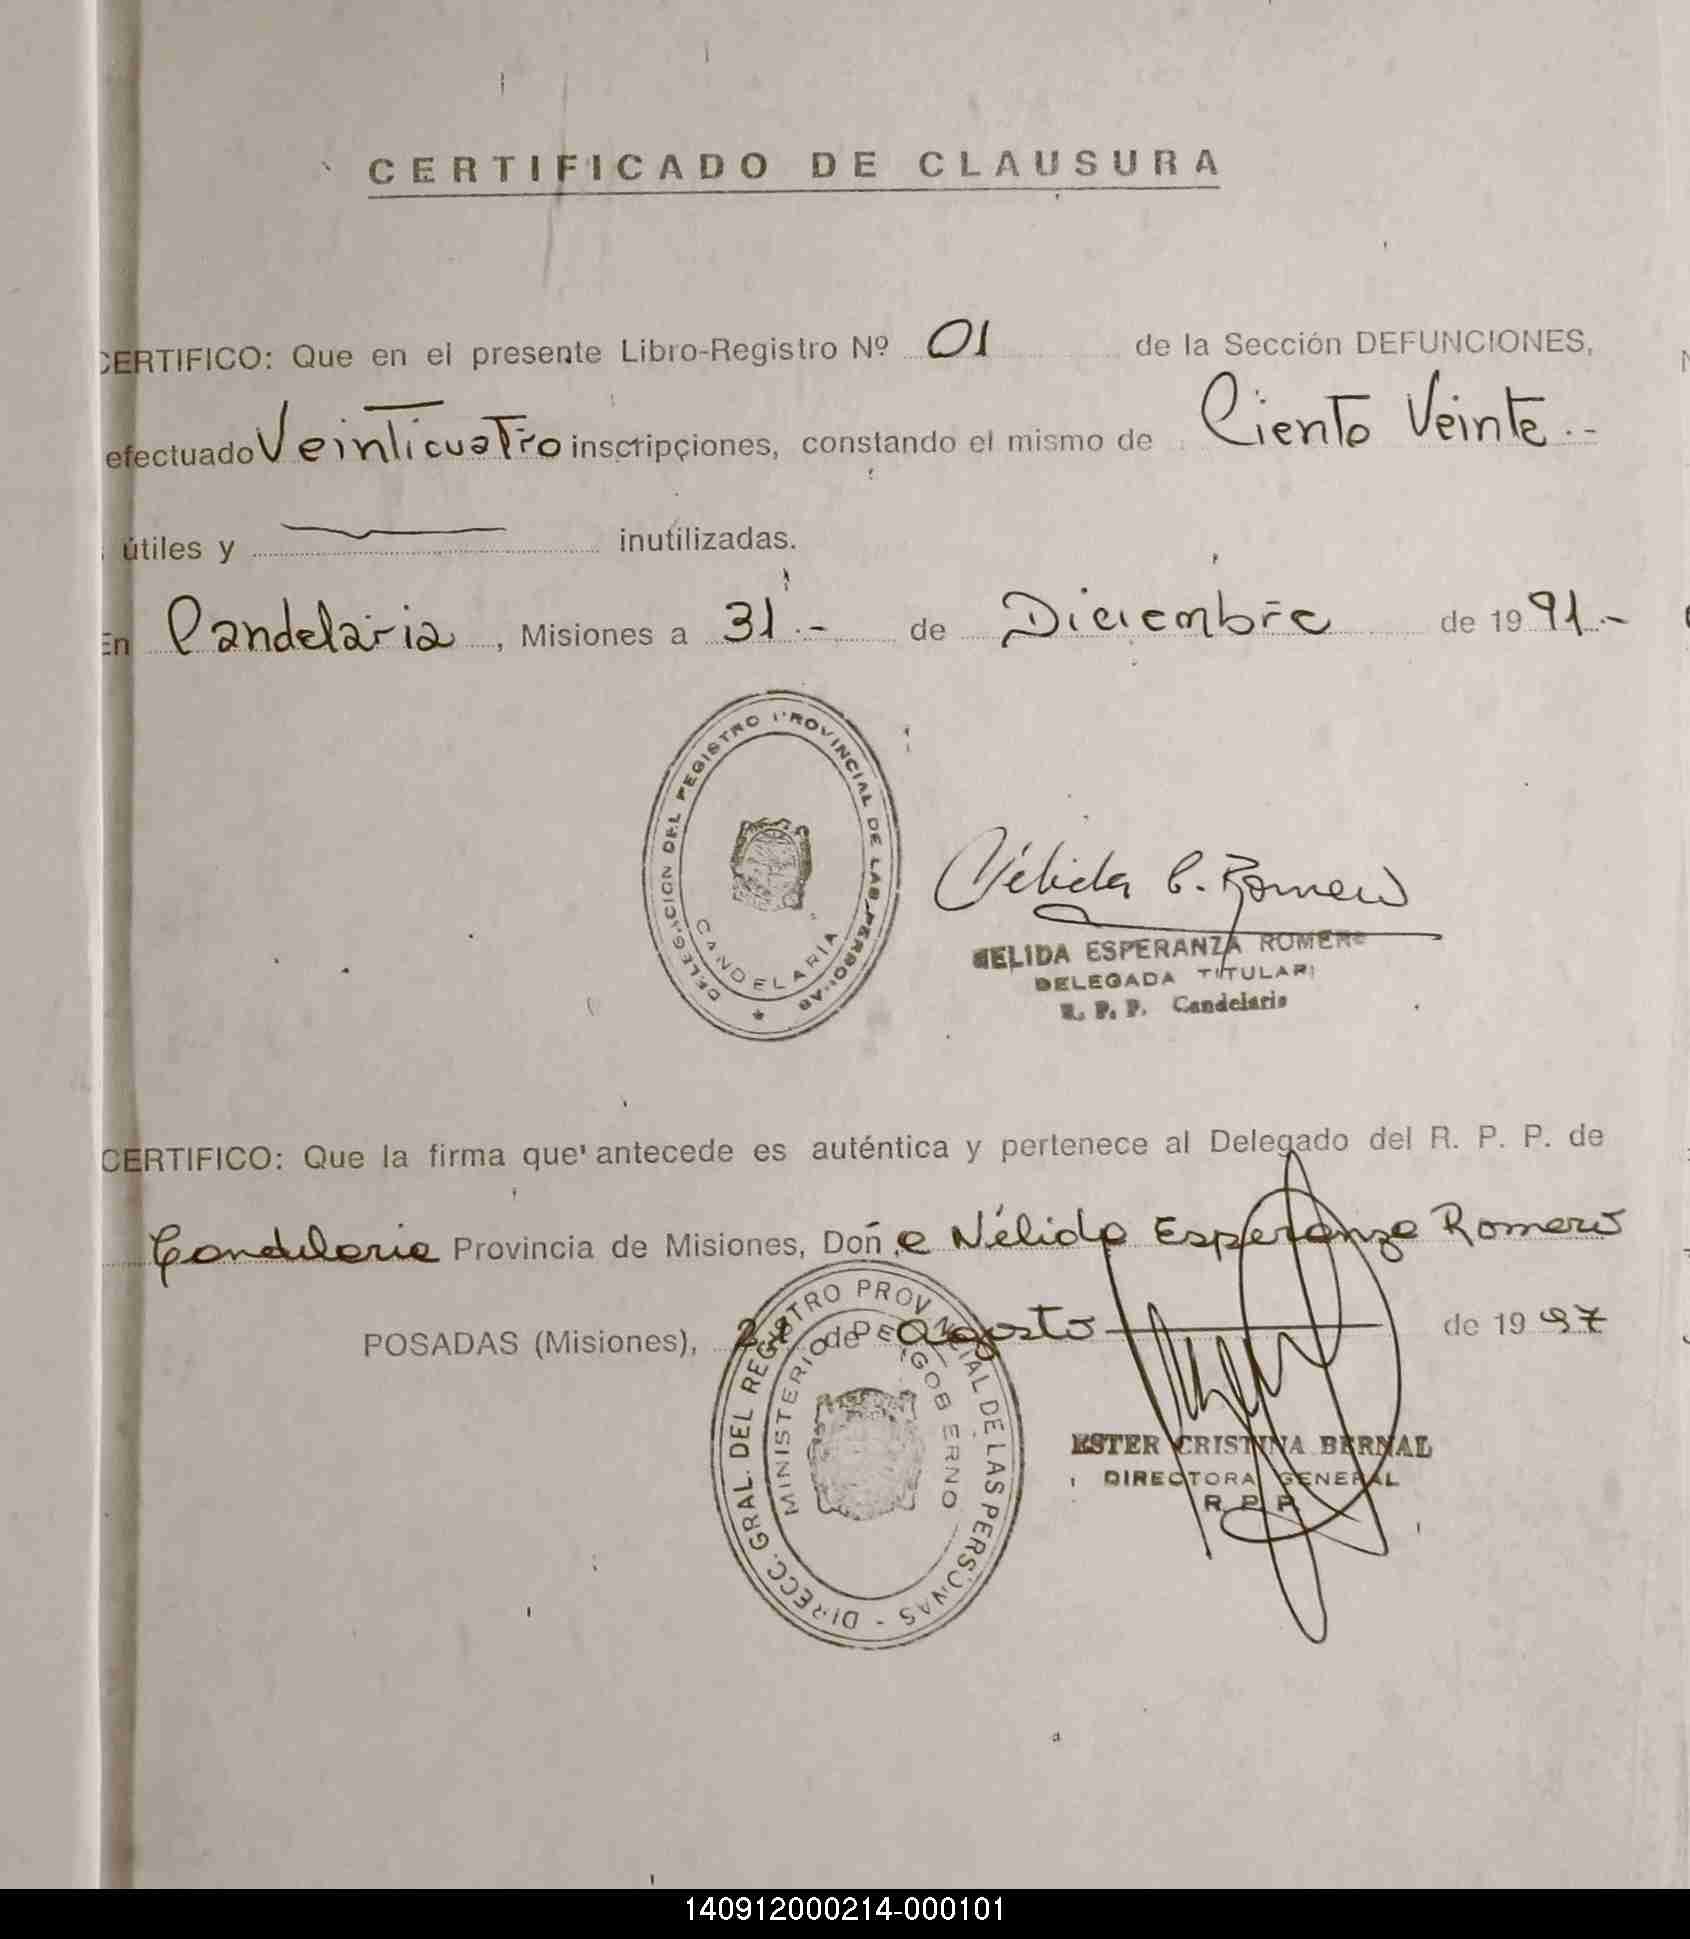 CERTIFICADO DE CLAUSURA
CERTIFICO: Que en el presente Libro-Registro Nº 01 de la Sección DEFUNCIONES,
efectuado Veinticuatro inscripciones, constando el mismo de Ciento Veinte.-
útiles y inutilizadas.
En Candelaria, Misiones a 31.- de Diciembre de 1991.-
DELEGACION DEL REGISTRO PROVINCIAL DE LAS PERSONAS
CANDELARIA
Nélida E. Romero
NELIDA ESPERANZA ROMERO
DELEGADA TITULAR
R. P. P. Candelaria
CERTIFICO: Que la firma que antecede es auténtica y pertenece al Delegado del R. P. P. de
Candelaria Provincia de Misiones, Doña Nélida Esperanza Romero
POSADAS (Misiones), de Agosto de 1997
DIRECC. GRAL. DEL REGISTRO PROVINCIAL DE LAS PERSONAS
MINISTERIO DE GOBIERNO
ESTER CRISTINA BERNAL
DIRECTORA GENERAL
R. P. P.
140912000214-000101